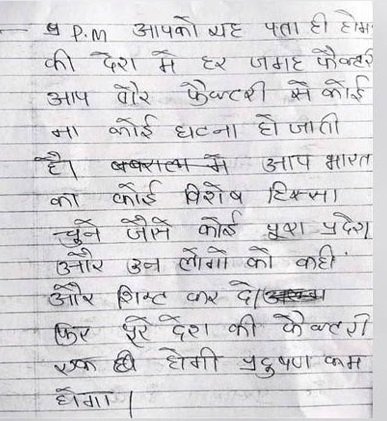 P.M आपको यह पता ही होगा
की देश में हर जगह फैक्टरी
आप और फैक्टरी से कोई
ना कोई घटना हो जाती
है। में आप भारत
का कोई विशेष हिस्सा
चुने जैसे कोई पूरा प्रदेश
और उन लोगों को कहीं
और शिफ्ट कर दे।
फिर पूरे देश की फैक्टरी
एक ही होगी प्रदुषण कम
होगा।